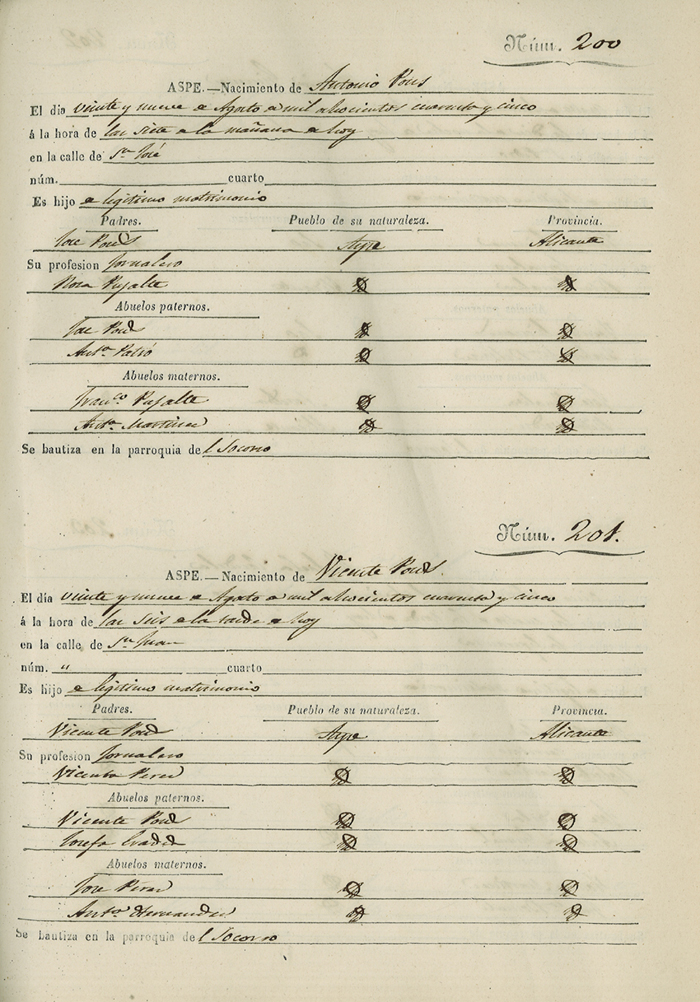 Núm. 200
ASPE.—Nacimiento de Antonio Pons
El dia veinte y nueve e Agosto e mil ochocientos cuarenta y cinco
á la hora de las siete e la mañana e hoy
en la calle de Sn José
núm. cuarto
Es hijo e legitimo matrimonio
Padres. Pueblo de su naturaleza. Provincia.
Jose Pons Aspe Alicante
Su profesion Jornalero
Rosa Pujalte
Abuelos paternos.
Jose Pons
Anta
Abuelos maternos.
Franco Pujalte
Anta Martinez
Se bautiza en la parroquia del Socorro
Núm. 201.
ASPE.—Nacimiento de Vicente Pons.
El dia veinte y nueve e Agosto e mil ochocientos cuarenta y cinco
á la hora de las seis e la tarde e hoy
en la calle de Sn Juan
núm. " cuarto
Es hijo e legitimo matrimonio
Padres. Pueblo de su naturaleza. Provincia.
Vicente Pons Aspe Alicante
Su profesion Jornalero
Vicenta Perez
Abuelos paternos.
Vicente Pons
Josefa
Abuelos maternos.
Jose Perez
Anta Hernandez
Se bautiza en la parroquia del Socorro